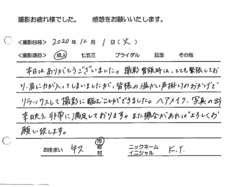 撮影お疲れ様でした。 感想をお願いいたします。
撮影日時 2020年 12月 1日(火)
撮影項目 成人 七五三 ブライダル 記念 その他
本日はありがとうございました。撮影皆様時は、とても緊張しており
、肩に力が入ってしまいましたが、皆様の温かい声掛けのおかげで
リラックスして撮影に臨むことができました。ヘアメイク、写真の
本日 非常に満足しております。また機会があればよろしくお
願い致します。
お住まい 市 ニックネーム イニシャル K.T.